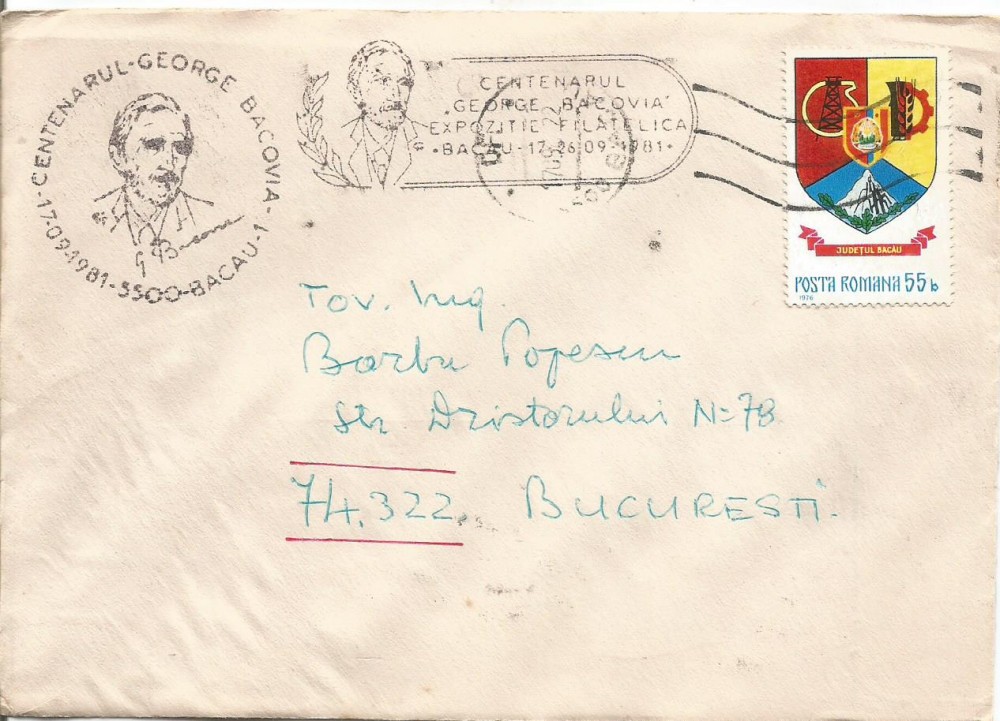 CENTENARUL-GEORGE BACOVIA-
-17.091981-5500-BACAU-1
CENTENARUL
"GEORGE BACOVIA"
EXPOZITIE FILATELICA
•BACAU-17-26.09.1981•
JUDEȚUL BACĂU
POSTA ROMANA 55b
1976
Tov. Ing.
Barbu Popescu
Str Dristorului N=78
74.322. BUCURESTI.